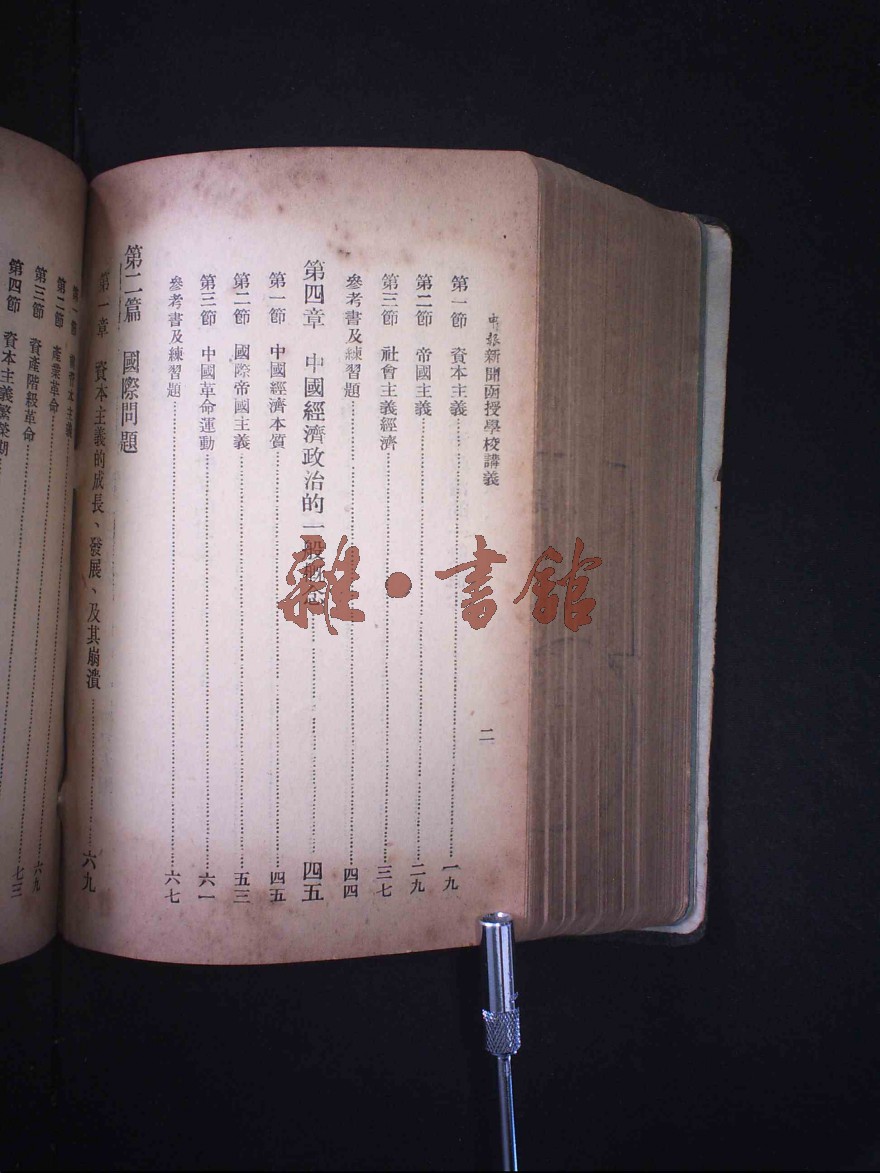 申報新聞函授學校講義
二
第一節 資本主義 一九
第二節 帝國主義 二九
第三節 社會主義經濟 三七
參考書及練習題 四四
第四章 中國經濟政治的一般 四五
第一節 中國經濟本質 四五
第二節 國際帝國主義 五三
第三節 中國革命運動 六一
參考書及練習題 六七
第二篇 國際問題
第一章 資本主義的成長、發展、及其崩潰 六九
第二節 產業革命
第三節 資產階級革命 六九
第四節 資本主義繁榮期 七三
雜·書館